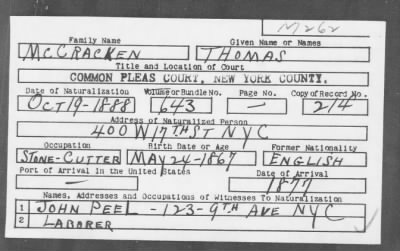 M262
Family Name Given Name or Names
McCRACKEN THOMAS
Title and Location of Court
COMMON PLEAS COURT, NEW YORK COUNTY.
Date of Naturalization Volume or Bundle No. Page No. Copy of Record No.
OCT 19-1888 643 — 214
Address of Naturalized Person
400 W 17TH ST NYC
Occupation Birth Date or Age Former Nationality
STONE-CUTTER MAY 24-1867 ENGLISH
Port of Arrival in the United States Date of Arrival
— 1877
Names, Addresses and Occupations of Witnesses To Naturalization
1 JOHN PEEL - 123-9TH AVE NYC
2 LABORER